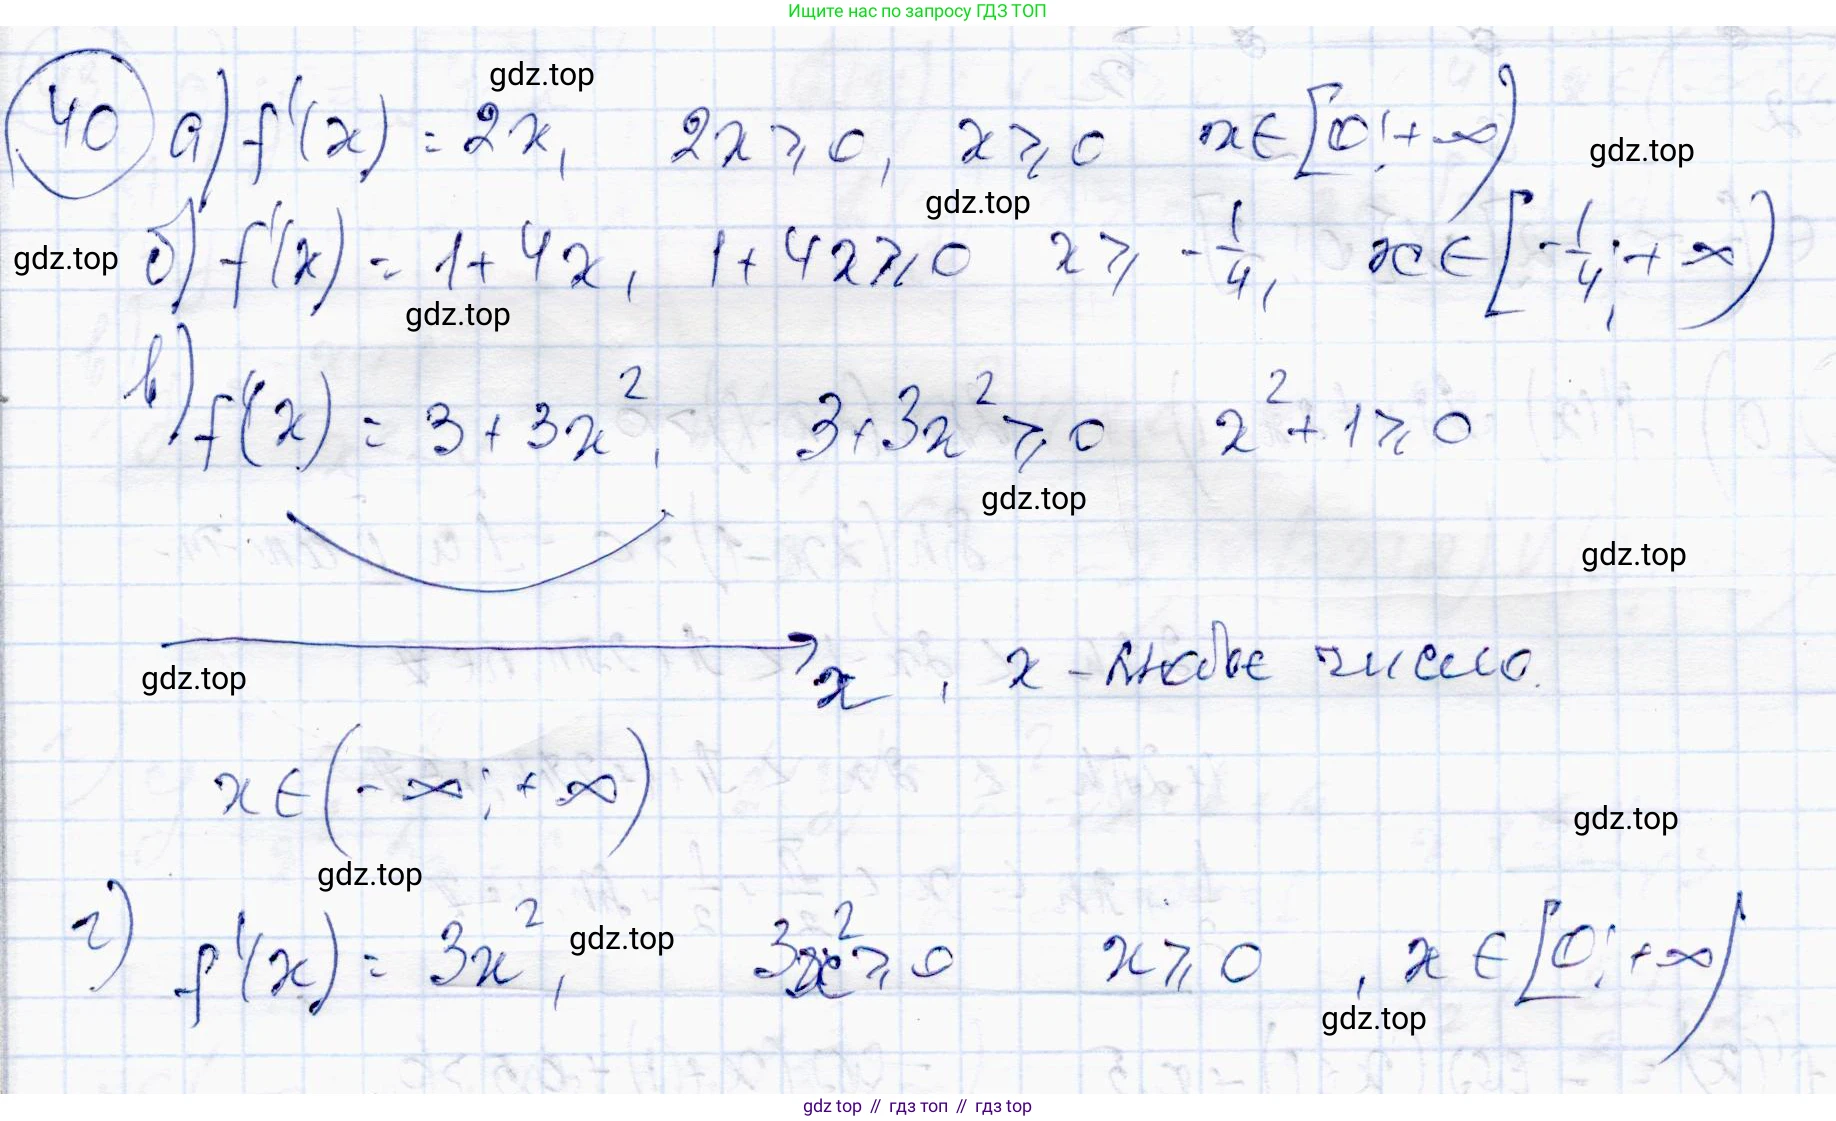 Ищите нас по запросу ГДЗ ТОП
gdz.top
40 а) f'(x) = 2x, 2x ⩾ 0, x ⩾ 0 x ∈ [0; +∞)
gdz.top
gdz.top
gdz.top б) f'(x) = 1 + 4x, 1 + 4x ⩾ 0 x ⩾ -1/4, x ∈ [-1/4; +∞)
gdz.top
в) f'(x) = 3 + 3x², 3 + 3x² ⩾ 0 x² + 1 ⩾ 0
gdz.top
gdz.top
x, x - любое число.
gdz.top
x ∈ (-∞; +∞)
gdz.top
gdz.top
г) f'(x) = 3x², 3x² ⩾ 0 x ⩾ 0, x ∈ [0; +∞)
gdz.top
gdz.top
gdz top // гдз топ // гдз top